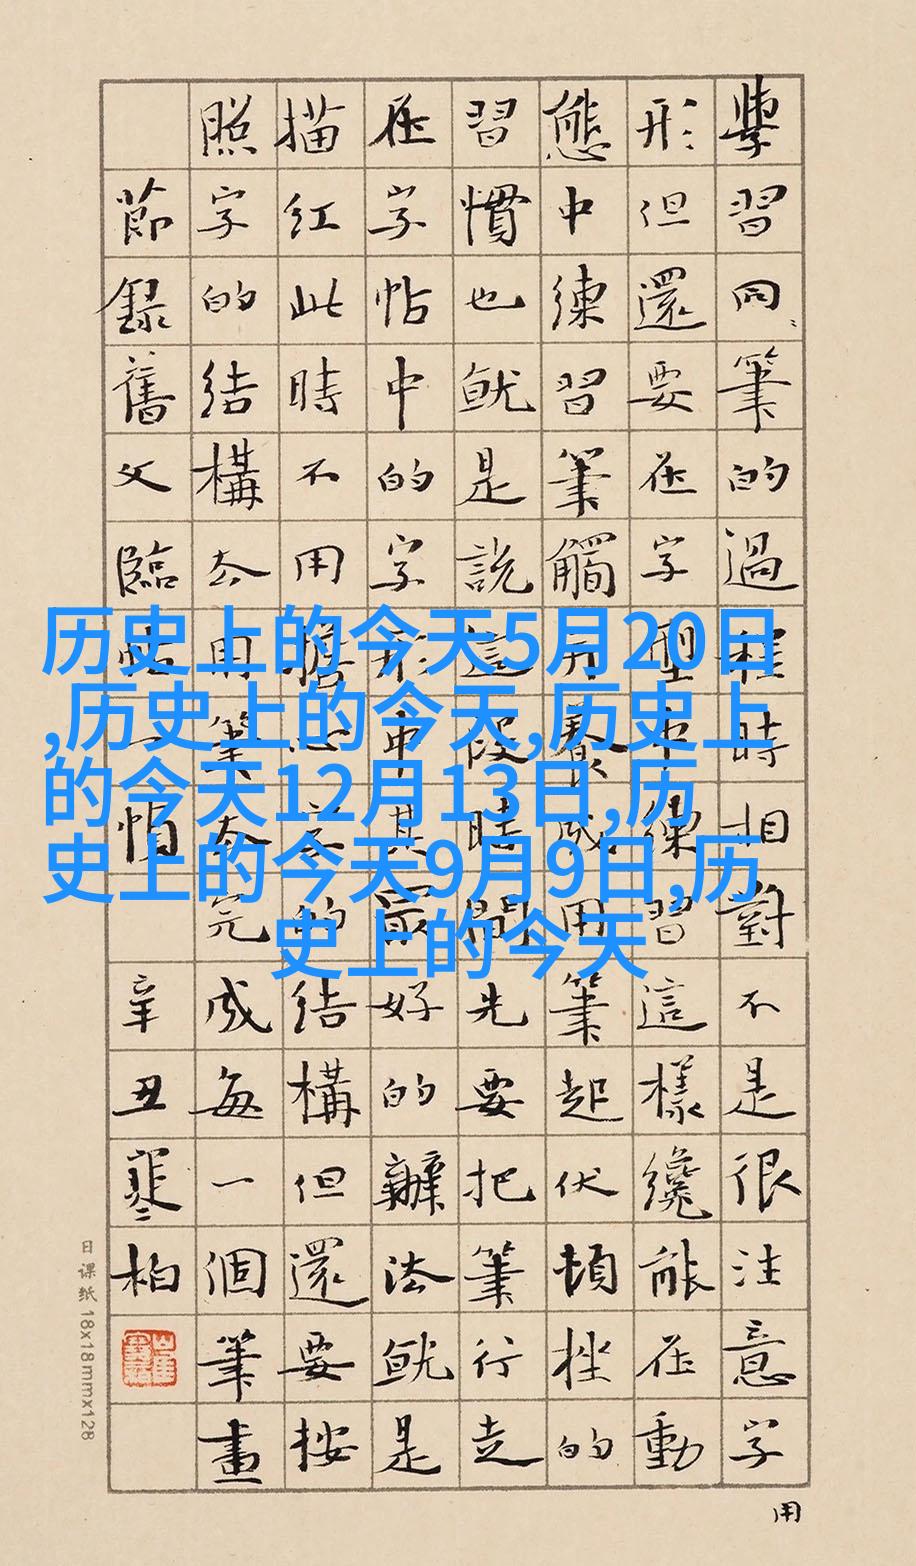 历史上的今天5月20日
,历史上的今天,历史上
的今天12月13日,历
史上的今天9月9日,历
史上的今天
學習同筆的過程時相對不是很注意字
形但還要在字型中練習這樣纔能在動
態中練習筆觸養成用筆起伏頓挫的
習慣也就是說這段時間先要把筆行走
在字帖中的字形中其最好的辦法就是
描紅此時不用擔心字的結構但還要按
照字的結構去用筆去完成每一個筆畫
節錄舊文臨帖一
辛丑寒柏
用
日课纸 18x18mmx128